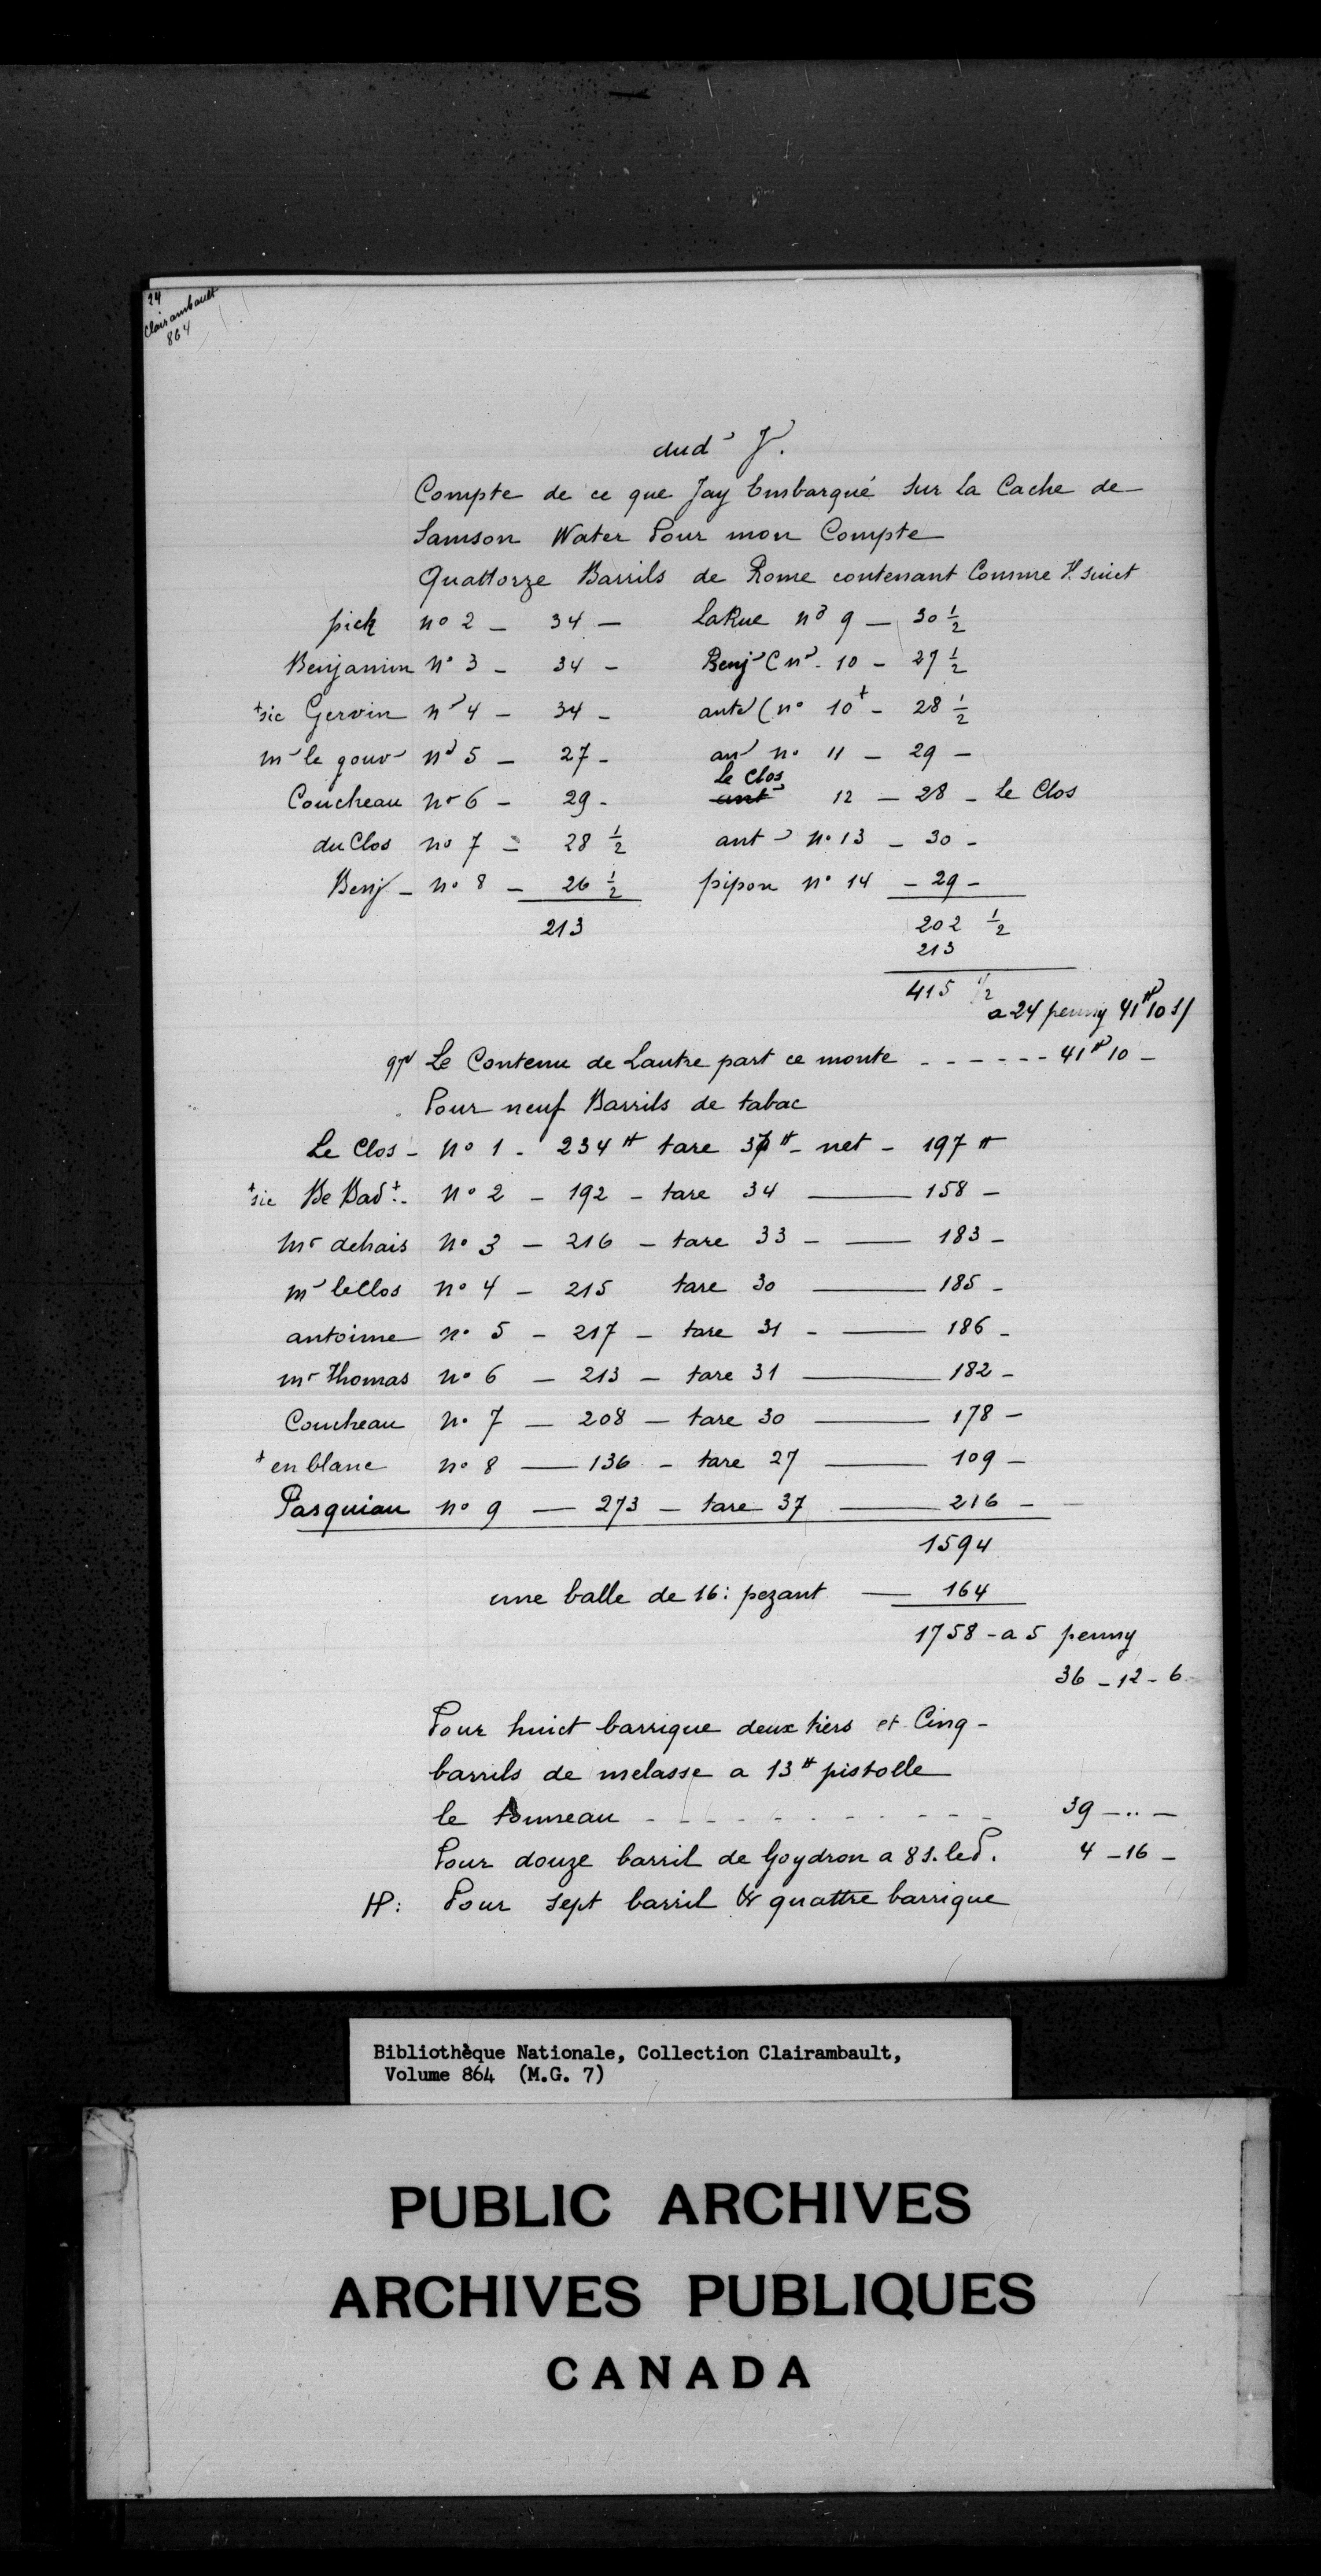 24
Clairambault
864
dud J.
Compte de ce que Jay Embarqué Sur La Cache de
Samson Water Pour mon Compte
Quattorze Barrils de Rome contenant Comme Il suict
pick no 2 - 34 - LaRue no 9 - 30 1/2
Benjamin no 3 - 34 - Benj (no. 10 - 27 1/2
+sic Gervin no 4 - 34 - ante (no 10+ - 28 1/2
mr le gouvr no 5 - 27 - an no 11 - 29 -
Le Clos
Coucheau no 6 - 29 - ant 12 - 28 - Le Clos
du Clos no 7 - 28 1/2 ant no 13 - 30 -
Benj - no 8 - 26 1/2 pipon no 14 - 29 -
213 202 1/2
213
415 1/2
a 24 penny 41 10 s/
Le Contenu de Lautre part ce monte - - - - - - 41 10 -
Pour neuf Barrils de tabac
Le Clos - no 1 - 234 # tare 37 # - net - 197 #
+sic Be Bad+. - no 2 - 192 - tare 34 — 158 -
mr dehais no 3 - 216 - tare 33 - — 183 -
mr leClos no 4 - 215 tare 30 — 185 -
antoinne no 5 - 217 - tare 31 - — 186 -
mr Thomas no 6 - 213 - tare 31 — 182 -
Coucheau no 7 - 208 - tare 30 — 178 -
+ en blanc no 8 — 136 - tare 27 — 109 -
Pasquiau no 9 — 273 - tare 37 — 216 -
1594
une balle de 16: pezant — 164
1758 - a 5 penny
36 - 12 - 6
Pour huict barrique deux tiers et Cinq -
barrils de melasse a 13 # pistolle
le tonneau - - - - - - - - - - 39 - .. -
Pour douze barril de Goydron a 8 s. le P. 4 - 16 -
Pour sept barril & quattre barrique
Bibliothèque Nationale, Collection Clairambault,
Volume 864 (M.G. 7)
PUBLIC ARCHIVES
ARCHIVES PUBLIQUES
CANADA